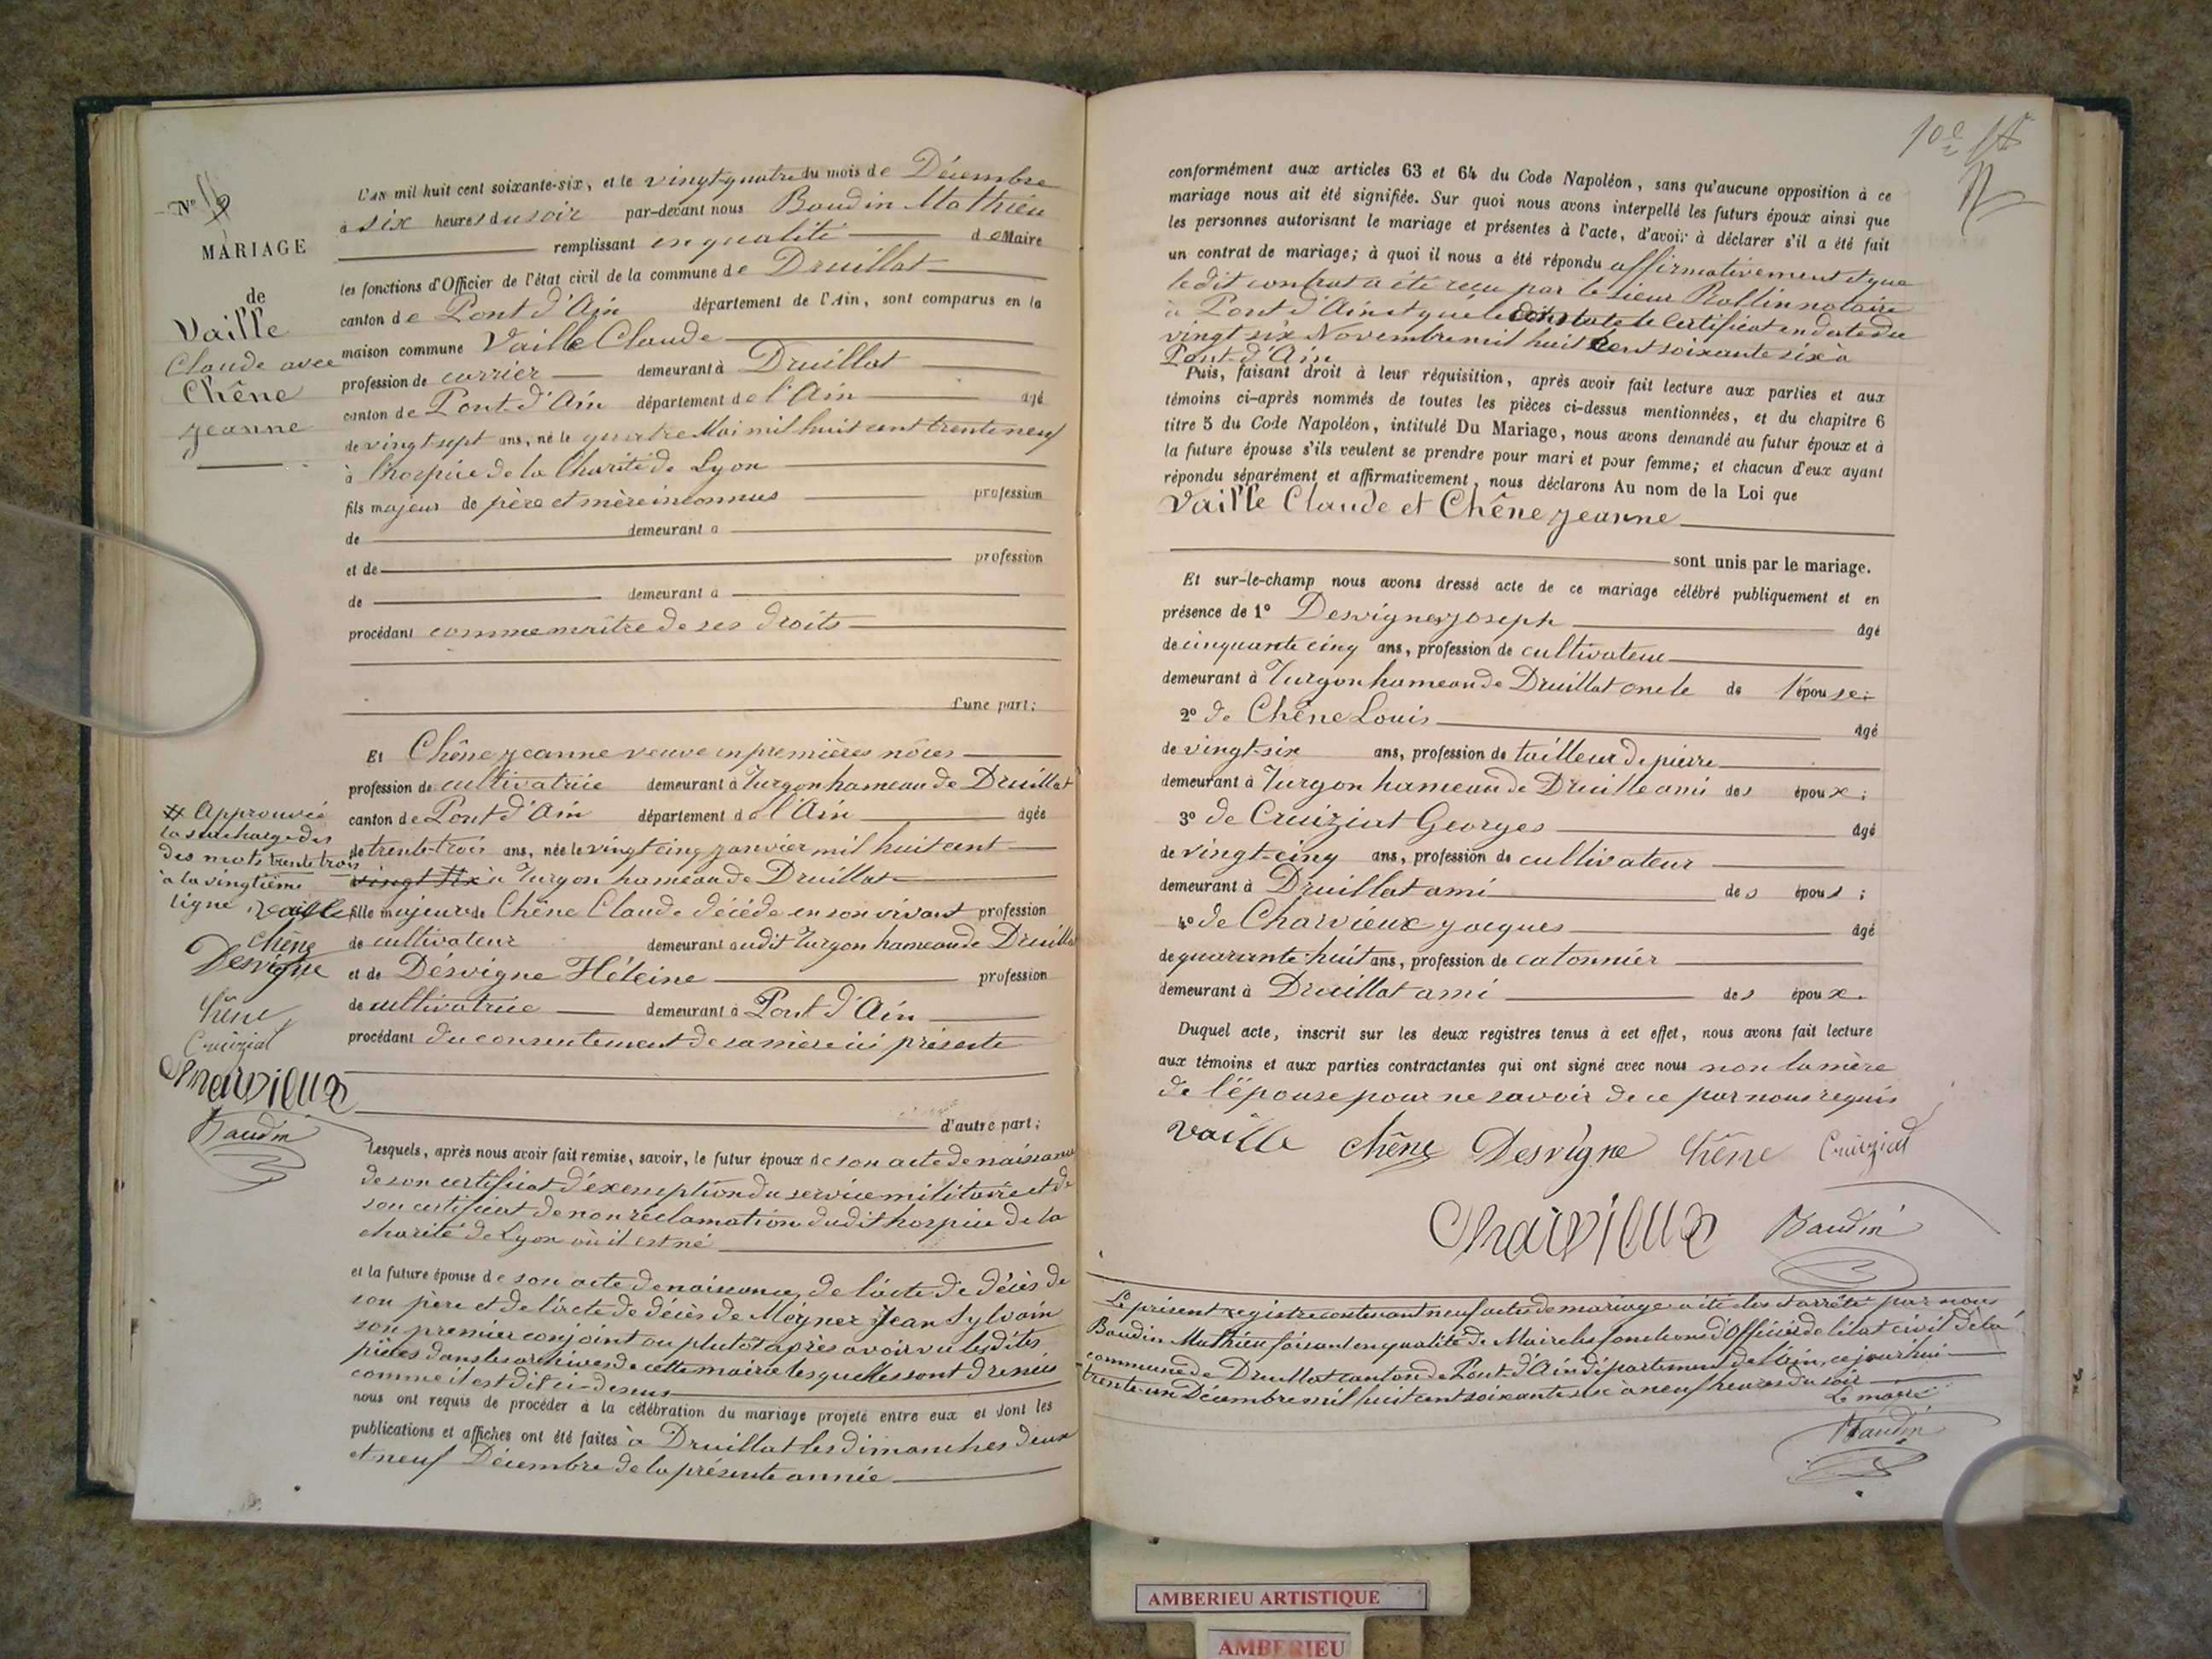 N° 9
MARIAGE
de
Vaille
Claude avec
Chêne
Jeanne
L'AN mil huit cent soixante-six, et le vingt-quatre du mois de Décembre
à six heures du soir par-devant nous Baudin Mathieu
remplissant en qualité de Maire
les fonctions d'Officier de l'état civil de la commune de Druillat
canton de Pont d'Ain département de l'Ain, sont comparus en la
maison commune Vaille Claude
profession de carrier demeurant à Druillat
canton de Pont-d'Ain département de l'Ain âgé
de vingt sept ans, né le quatre Mai mil huit cent trente neuf
à l'hospice de la Charité de Lyon
fils majeur de père et mère inconnus profession
de demeurant à
et de profession
de demeurant à
procédant comme maître de ses droits
d'une part;
Et Chêne Jeanne veuve en premières nôces
profession de cultivatrice demeurant à Turgon hameau de Druillat
canton de Pont d'Ain département de l'Ain âgée
de trente-trois ans, née le vingt cinq janvier mil huit cent
vingt six à Turgon hameau de Druillat
fille majeure de Chêne Claude décédé en son vivant profession
de cultivateur demeurant audit Turgon hameau de Druillat
et de Désvigne Héleine profession
de cultivatrice demeurant à Pont d'Ain
procédant du consentement de sa mère ici présente
d'autre part;
# Approuvée
la surcharge des
des mots trente trois
à la vingtième
ligne Vaille
Chêne
Desvigne
Chêne
Cruiziat
Charvieux
Baudin
Lesquels, après nous avoir fait remise, savoir, le futur époux de son acte de naissance
de son certificat d'exemption du service militaire et de
son certificat de non réclamation dudit hospice de la
charité de Lyon où il est né
et la future épouse de son acte de naissance, de l'acte de décès de
son père et de l'acte de décès de Meynez Jean Sylvain
son premier conjoint ou plutôt après avoir vu lesdites
pièces dans les archives de cette mairie lesquelles sont
comme il est dit ci-dessus
nous ont requis de procéder à la célébration du mariage projeté entre eux et dont les
publications et affiches ont été faites à Druillat les dimanches deux
et neuf Décembre de la présente année
conformément aux articles 63 et 64 du Code Napoléon, sans qu'aucune opposition à ce
mariage nous ait été signifiée. Sur quoi nous avons interpellé les futurs époux ainsi que
les personnes autorisant le mariage et présentes à l'acte, d'avoir à déclarer s'il a été fait
un contrat de mariage; à quoi il nous a été répondu affirmativement et que
ledit contrat a été reçu par le sieur Rollin notaire
à Pont d'Ain et que le constate le certificat en date du
vingt six Novembre mil huit cent soixante six à
Pont-d'Ain
Puis, faisant droit à leur réquisition, après avoir fait lecture aux parties et aux
témoins ci-après nommés de toutes les pièces ci-dessus mentionnées, et du chapitre 6
titre 5 du Code Napoléon, intitulé Du Mariage, nous avons demandé au futur époux et à
la future épouse s'ils veulent se prendre pour mari et pour femme; et chacun d'eux ayant
répondu séparément et affirmativement, nous déclarons Au nom de la Loi que
Vaille Claude et Chêne Jeanne
sont unis par le mariage.
Et sur-le-champ nous avons dressé acte de ce mariage célébré publiquement et en
présence de 1° Desvignes Joseph âgé
de cinquante cinq ans, profession de cultivateur
demeurant à Turgon hameau de Druillat oncle de l'épouse;
2° de Chêne Louis âgé
de vingt-six ans, profession de tailleur de pierre
demeurant à Turgon hameau de Druille ami des époux;
3° de Cruiziat Georges âgé
de vingt-cinq ans, profession de cultivateur
demeurant à Druillat ami des épous;
4° de Charvieux Jacques âgé
de quarante-huit ans, profession de catonnier
demeurant à Druillat ami des époux.
Duquel acte, inscrit sur les deux registres tenus à cet effet, nous avons fait lecture
aux témoins et aux parties contractantes qui ont signé avec nous non la mère
de l'épouse pour ne savoir de ce par nous requis
Vaille Chêne Desvigne Chêne Cruiziat
Charvieux Baudin
Le présent registre contenant neuf actes de mariage a été clos et arrêté par nous
Baudin Mathieu faisant en qualité de Maire les fonctions d'Officier de l'état civil de la
commune de Druillat canton de Pont-d'Ain département de l'Ain, ce jourd'hui
trente-un Décembre mil huit cent soixante six à neuf heures du soir
Le maire
Baudin
AMBERIEU ARTISTIQUE
AMBERIEU